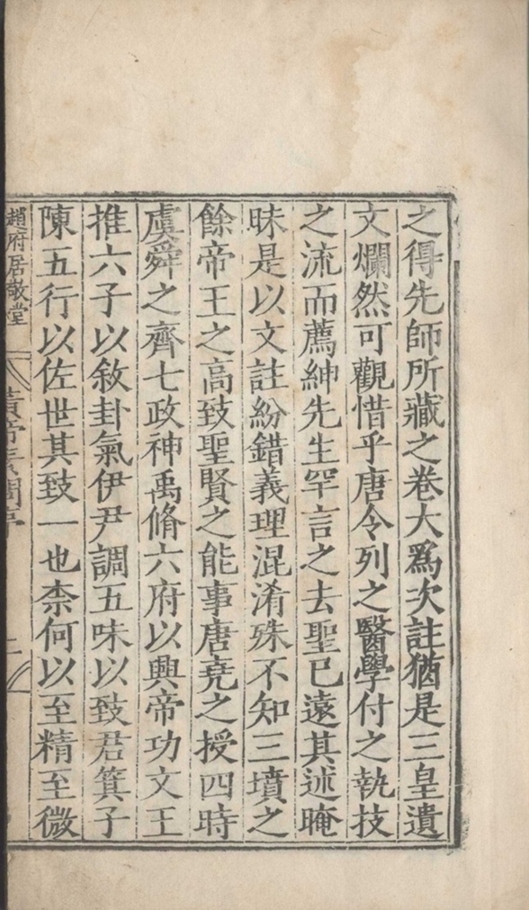 之得先師所藏之卷大爲次註猶是三皇遺
文爛然可觀惜乎唐令列之醫學付之執技
之流而薦紳先生罕言之去聖已遠其述晻
昧是以文註紛錯義理混淆殊不知三墳之
餘帝王之高致聖賢之能事唐堯之授四時
虞舜之齊七政神禹脩六府以興帝功文王
推六子以敘卦氣伊尹調五味以致君箕子
陳五行以佐世其致一也柰何以至精至微
趙府居敬堂